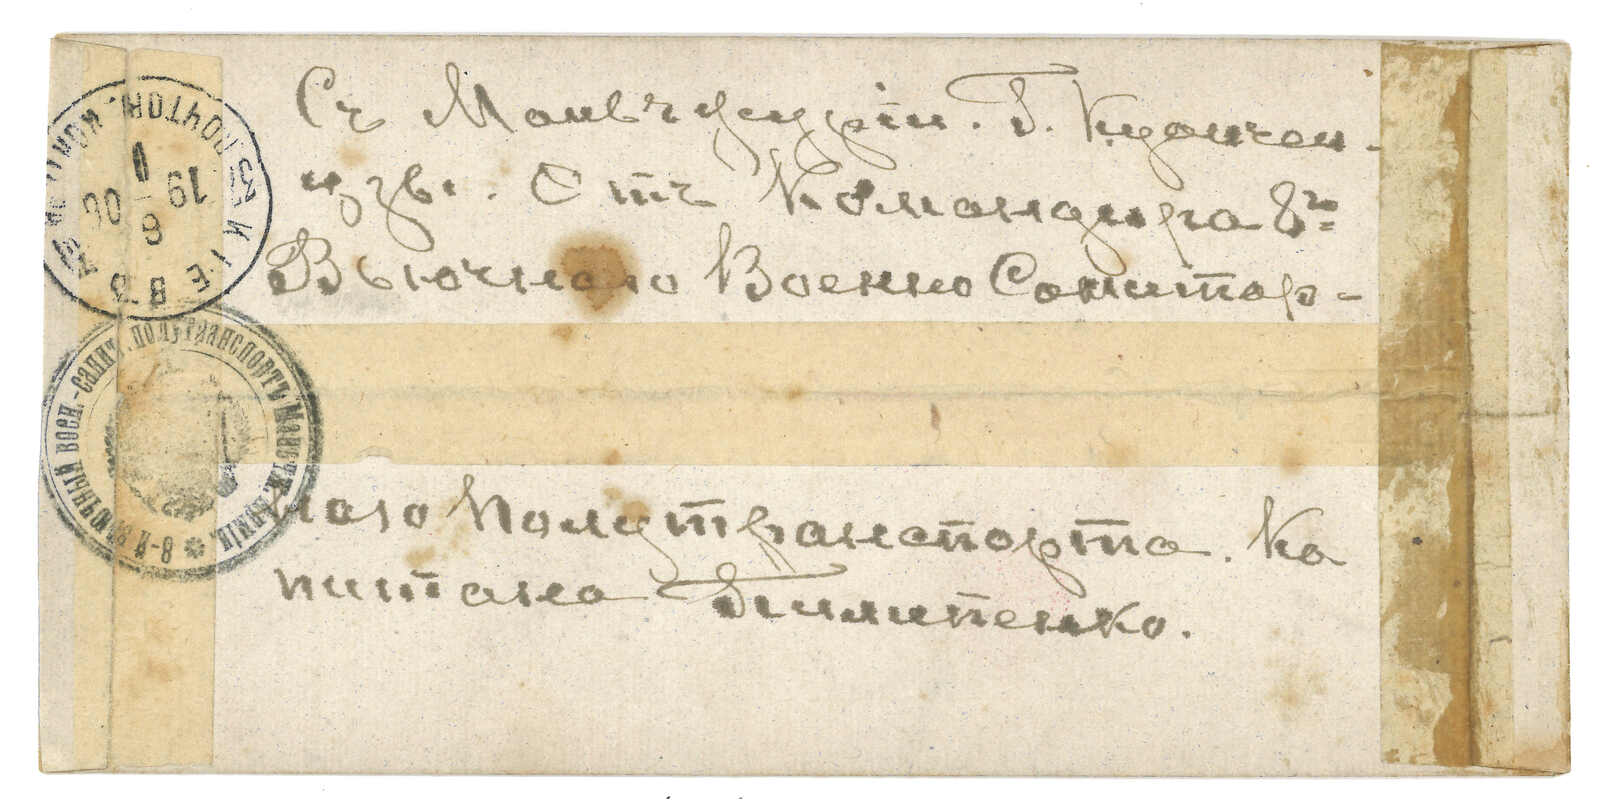 Съ Маньчжуріи. Г. Куанчен-
цзы. Отъ Командира 8го
Вьючнаго Военно Санитар-
наго Полутранспорта. Ка
питана Пилипенко.
КІЕВЪ
19 6 06
8-й ВЬЮЧНЫЙ ВОЕН.-САНИТ. ПОЛУТРАНСПОРТЪ МАНЬЧЖ. АРМІИ.